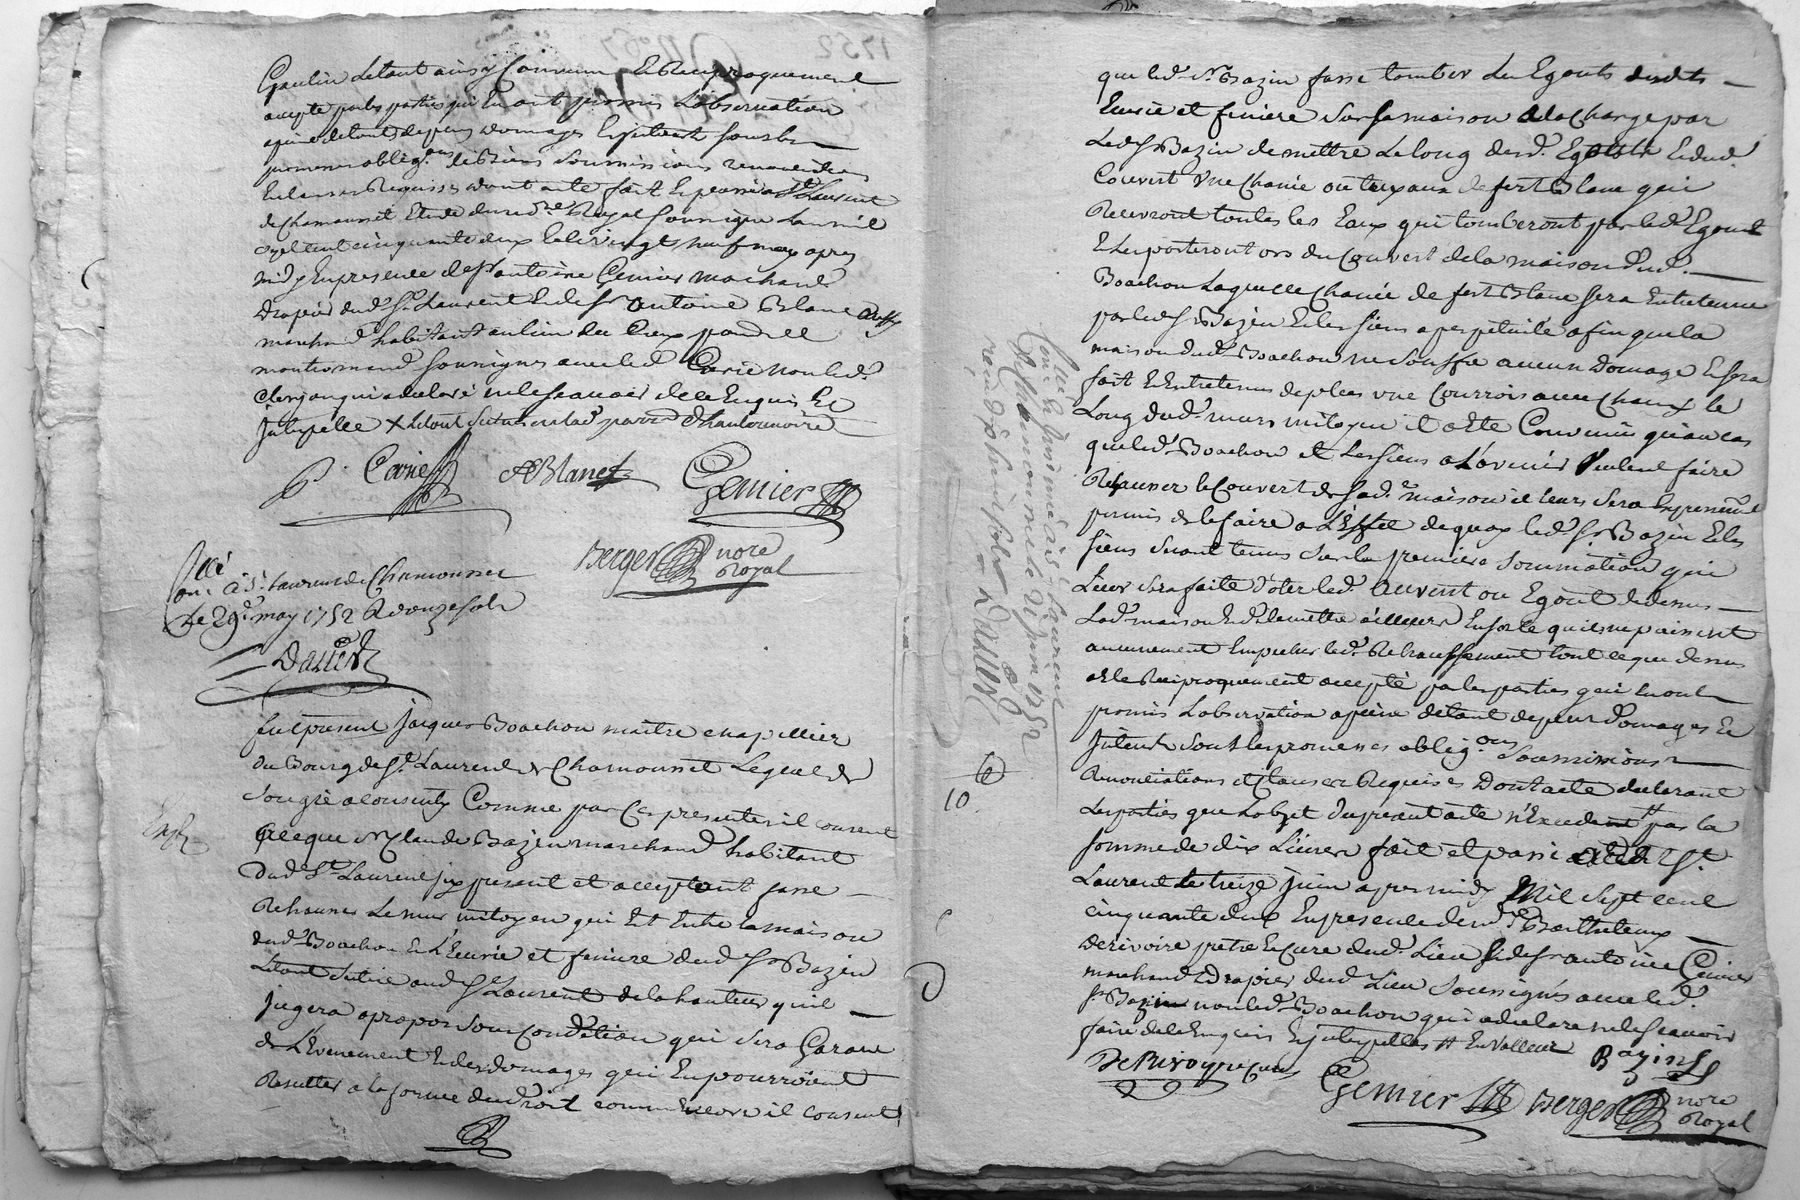 Cyaulin letout ainsy Convenu Et Reciproquement
accepté par les parties qui En ont promis Lobservation
apeine detout depens domages Linterests sous les
promesses oblig.ons de Biens Soumissions renonciations
Et clauses Requises dont acte fait Et passé a St Laurent
de Chamousset Etude du no.re Royal soussigné Lan mil
sept cent cinquante deux le vingt neuf may apres
midy En presence de sr antoine Gemier marchand
drapier dud. St. Laurent Et de sr antoine Blanc aussy
marchand habitant au lieu du
montromand soussignés avec led. Carie non led.
qui a declaré ne le scavoir de ce Enquis Et
Interpellé X
P. Carie ABlanc Gemier
Berger nore Royal
Cllé
con. à St. Laurent de Chamousset
Le 29e. may 1752 R douze sols
Dauier
fut present Jacques Boachon maitre chapellier
du Bourg de St. Laurent de Chamousset Lequel de
Son gré a consenty Comme par Ces presentes il consent
a ce que sr Claude Bazin marchand habitant
Expé
dud. St. Laurent icy present et acceptant fasse
Rehausser Le mur mitoyen qui Est Entre la maison
dud. Boachon Et L'Ecurie et feniere dud. sr Bazin
Letout Situé aud. St. Laurent de la hauteur quil
Jugera apropos Sous Condition qui sera Garant
de L'Evenement Et des domages qui En pourroient
Resulter a la forme du droit comm'encore il consent
que led. sr. Bazin fasse tomber Les Egouts desdits
Ecurie et feniere sur sa maison a la charge par
Led. sr Bazin de mettre Le long desd. Egouts Et dud.
Couvert une chanée ou tuyaux de fert Blanc qui
Recevront toutes les Eaux qui tomberont par led. Egout
Et les porteront ors du Couvert de la maison dud.
Boachon Laquelle chanée de fert Blanc sera Entretenue
par led. sr Bazin Et les siens a perpetuité afin que la
maison dud. Boachon ne souffre aucun domage Et sera
fait Et Entretenu de plus une Courroie avec chaux le
Long dud. mur mitoyen il a Eté Convenu qu'au cas
que led. Boachon et Les siens a L'avenir veulent faire
Rehausser le Couvert de sad. maison il leurs sera Expressement
permis de le faire a L'Effet de quoy led. sr. Bazin Et les
siens seront tenus sur la premiere sommation qui
Leur sera faite d'oter led. auvent ou Egout de dessus
Lad. maison Et de le mettre ailleurs En sorte qu'ils ne puissent
aucunement Empecher led. Rehaussement tout ce que dessus
a Eté Reciproquement accepté par les parties qui En ont
promis Lobservation a peine de tout depens domages Et
Interets sous Les promesses oblig.ons Soumissions
Renonciations et Clauses Requises Dont acte declarant
Les parties que Lobjet du present acte n'Excede # pas la
somme de dix Livres fait et passé aud. St.
Laurent Le treize Juin apres midy Mil sept cent
cinquante deux En presence de Barthelemy
Derivoire pretre Et Curé dud. Lieu Et de sr antoine Gemier
marchand Drapier dud. Lieu Soussignés avec led.
sr. Bazin non led. Boachon qui a declaré ne le scavoir
faire de ce Enquis Et Interpellé # En Valleur
Bazin
De Rivoyre curé Gemier Berger nore Royal
Collé
Con.é Et Insinué à St Laurent
de Chamousset le 21 Juin 1752
reçu
Dauier
10